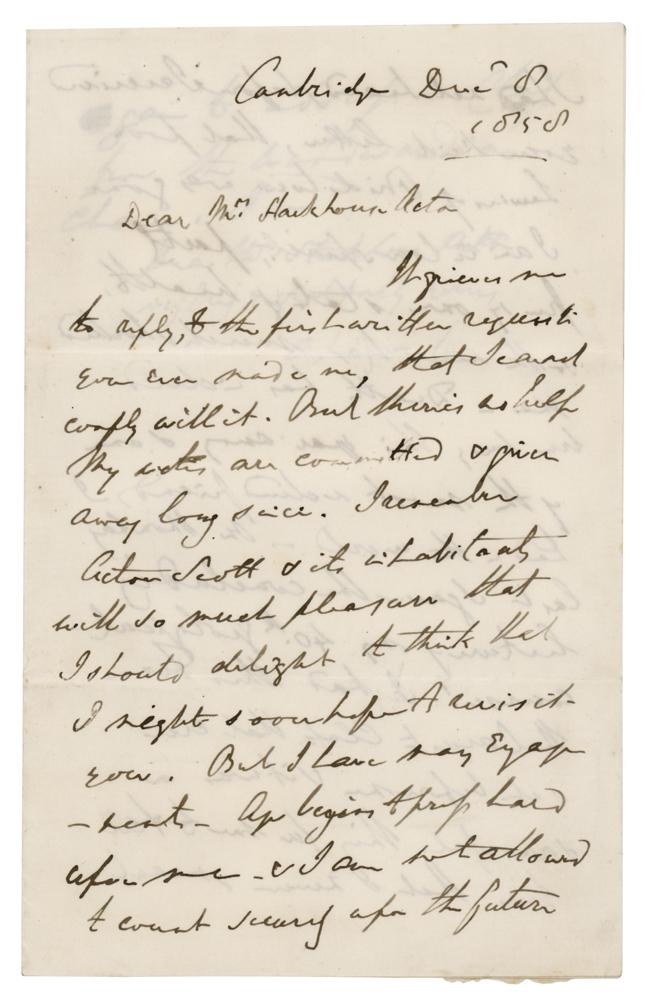 Cambridge Dec.r 8
1858
Dear Mrs. Stackhouse Acton
It grieves me
to reply, to the first written request
you ever made me, that I cannot
comply with it. But there is no help
My votes are committed & given
away long since. I remember
Acton Scott & its inhabitants
with so much pleasure that
I should delight to think that
I might soon hope to revisit
you. But I have many Engage
-ments - Age begins to press hard
upon me - & I am not allowed
to count securely upon the future